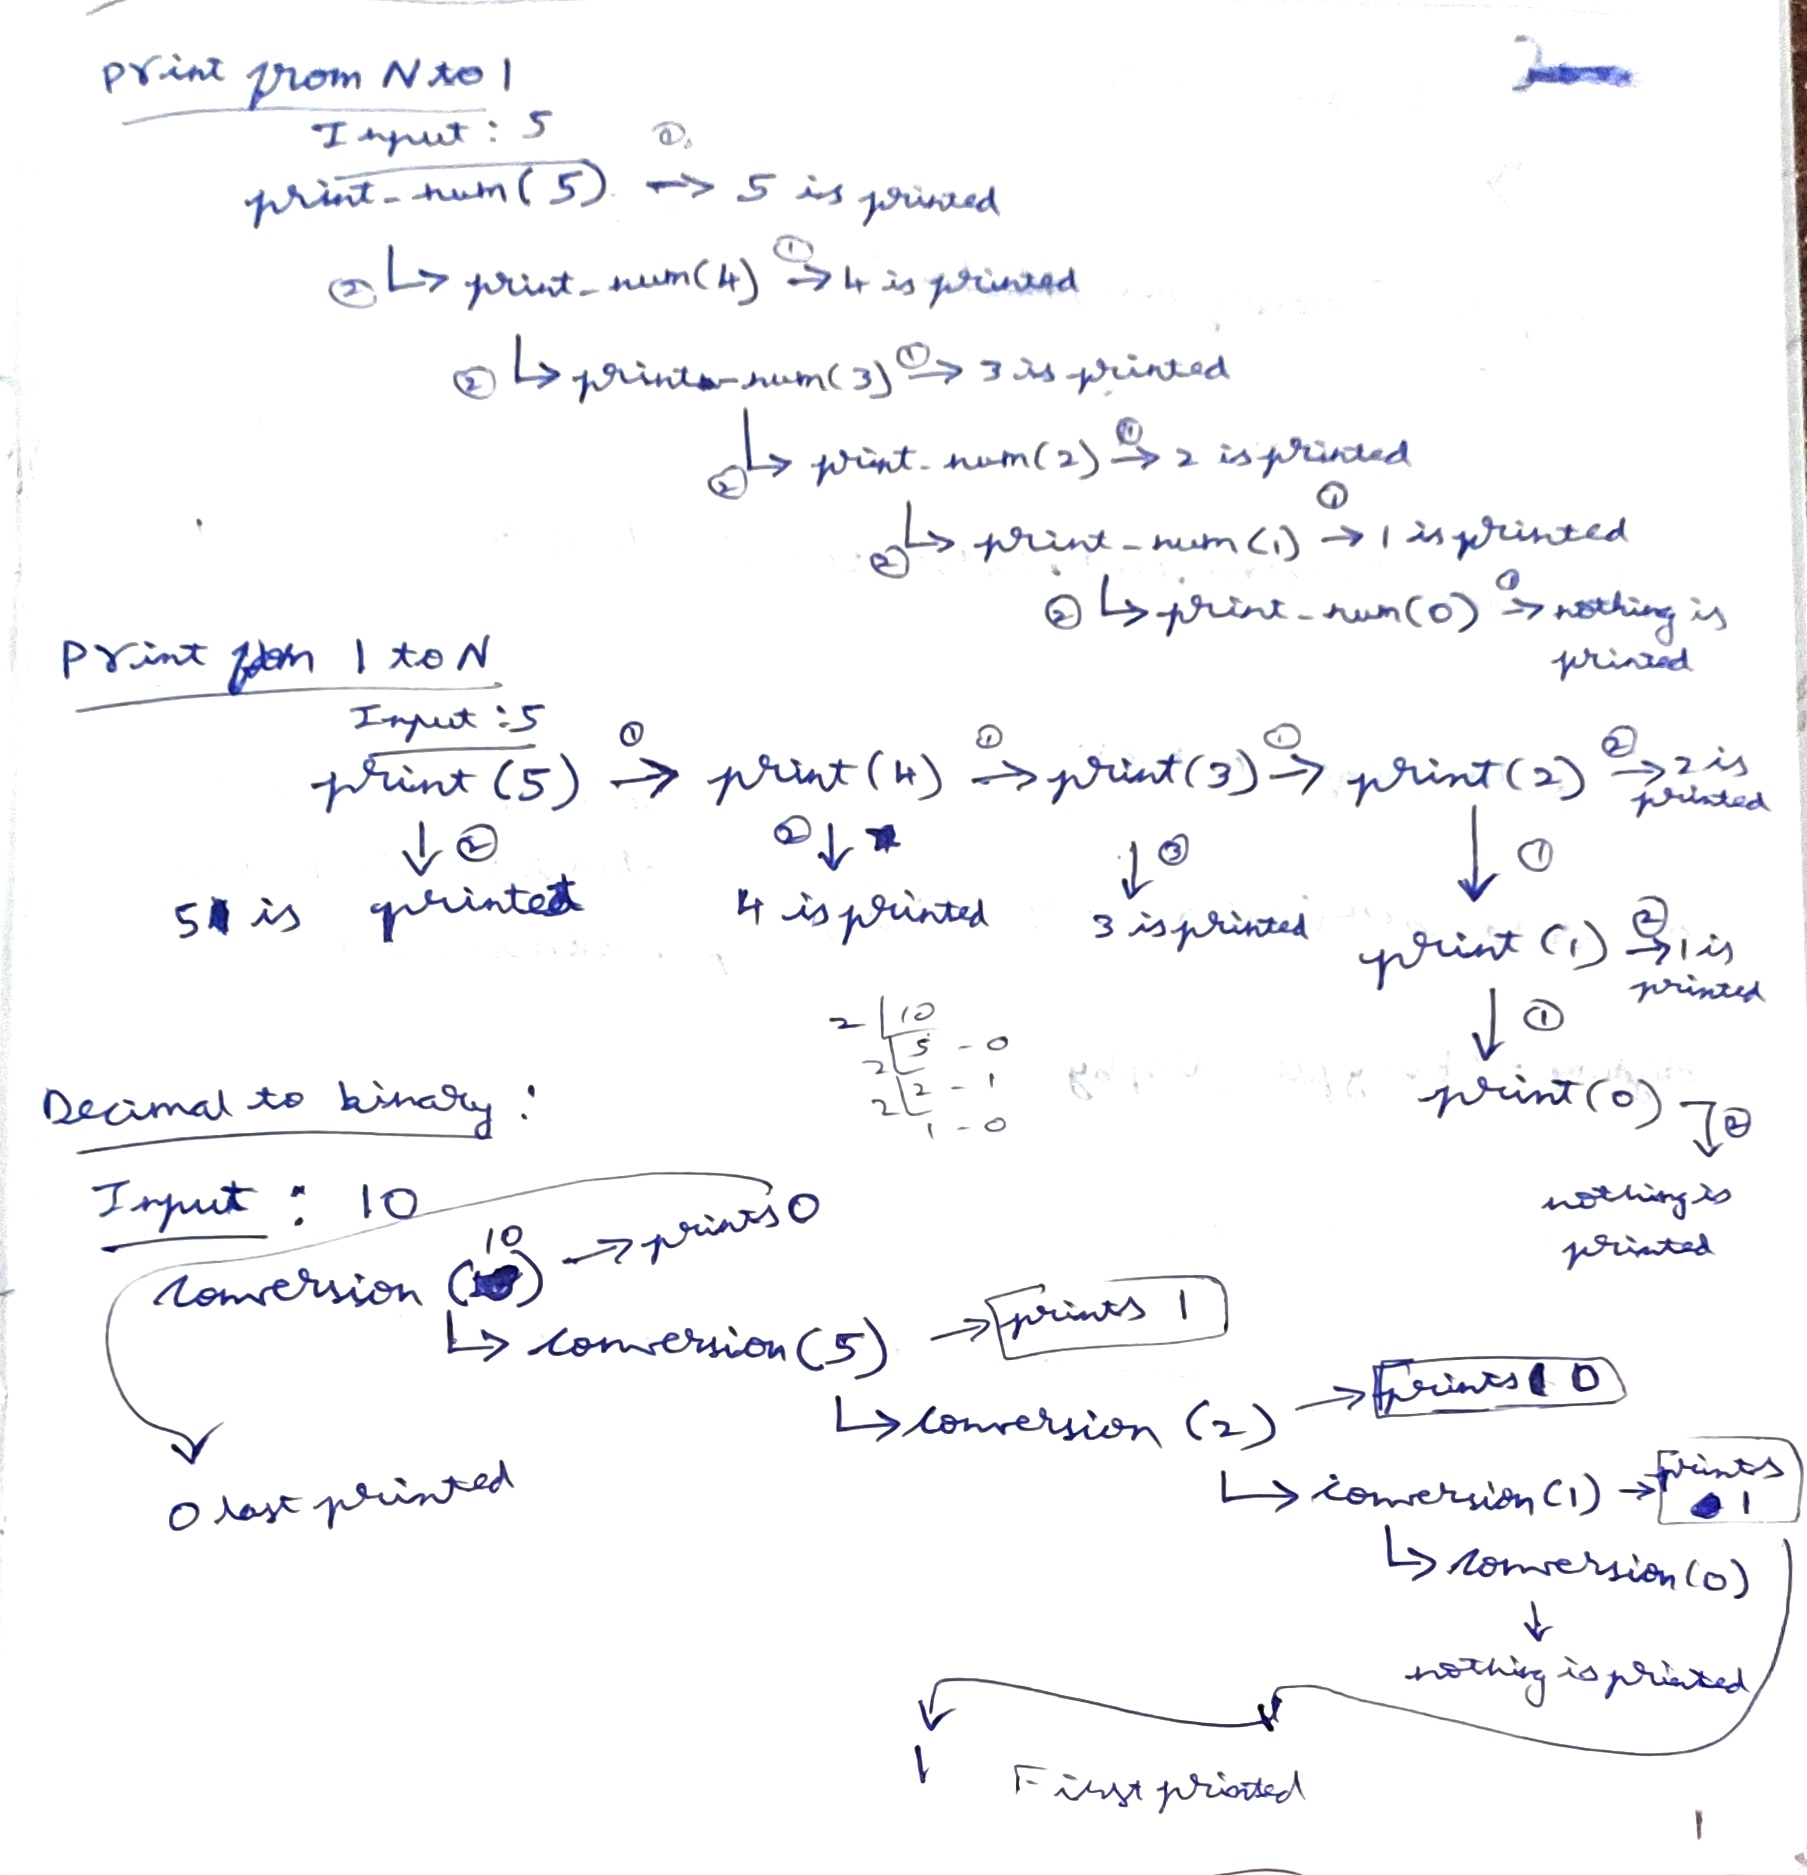 Print from N to 1
Input : 5
print_num(5) ① → 5 is printed
② ↳ print_num(4) ① → 4 is printed
② ↳ print_num(3) ① → 3 is printed
② ↳ print_num(2) ① → 2 is printed
② ↳ print_num(1) ① → 1 is printed
② ↳ print_num(0) ① → nothing is
printed
Print from 1 to N
Input : 5
print(5) ① → print(4) ① → print(3) ① → print(2) ② → 2 is
printed
↓ ② ② ↓ ↓ ② ↓ ①
5 is printed 4 is printed 3 is printed
print(1) ② → 1 is
printed
↓ ①
print(0) ②
nothing is
printed
2 10
2 5 - 0
2 2 - 1
1 - 0
Decimal to binary :
Input : 10
conversion (10) → prints 0
↳ conversion (5) → prints 1
↳ conversion (2) → prints 0
↳ conversion (1) → prints
1
↳ conversion (0)
↓
nothing is printed
0 last printed
1 First printed
1